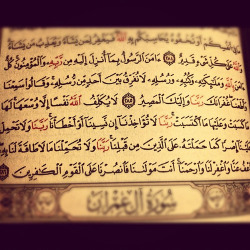 أَوْ تُخْفُوهُ يُحَاسِبْكُم بِهِ ٱللَّهُ فَيَغْفِرُ لِمَن يَشَآءُ وَيُعَذِّبُ مَن يَشَآءُ
وَٱللَّهُ عَلَىٰ كُلِّ شَىْءٍ قَدِيرٌ ﴿٢٨٤﴾ ءَامَنَ ٱلرَّسُولُ بِمَآ أُنزِلَ إِلَيْهِ مِن رَّبِّهِۦ وَٱلْمُؤْمِنُونَ كُلٌّ
ءَامَنَ بِٱللَّهِ وَمَلَٰٓئِكَتِهِۦ وَكُتُبِهِۦ وَرُسُلِهِۦ لَا نُفَرِّقُ بَيْنَ أَحَدٍ مِّن رُّسُلِهِۦ وَقَالُوا۟ سَمِعْنَا
وَأَطَعْنَا غُفْرَانَكَ رَبَّنَا وَإِلَيْكَ ٱلْمَصِيرُ ﴿٢٨٥﴾ لَا يُكَلِّفُ ٱللَّهُ نَفْسًا إِلَّا وُسْعَهَا لَهَا
مَا كَسَبَتْ وَعَلَيْهَا مَا ٱكْتَسَبَتْ رَبَّنَا لَا تُؤَاخِذْنَآ إِن نَّسِينَآ أَوْ أَخْطَأْنَا رَبَّنَا وَلَا تَحْمِلْ
عَلَيْنَآ إِصْرًا كَمَا حَمَلْتَهُۥ عَلَى ٱلَّذِينَ مِن قَبْلِنَا رَبَّنَا وَلَا تُحَمِّلْنَا مَا لَا طَاقَةَ لَنَا بِهِۦ
وَٱعْفُ عَنَّا وَٱغْفِرْ لَنَا وَٱرْحَمْنَآ أَنتَ مَوْلَىٰنَا فَٱنصُرْنَا عَلَى ٱلْقَوْمِ ٱلْكَٰفِرِينَ
سُورَةُ آلِ عِمْرَانَ